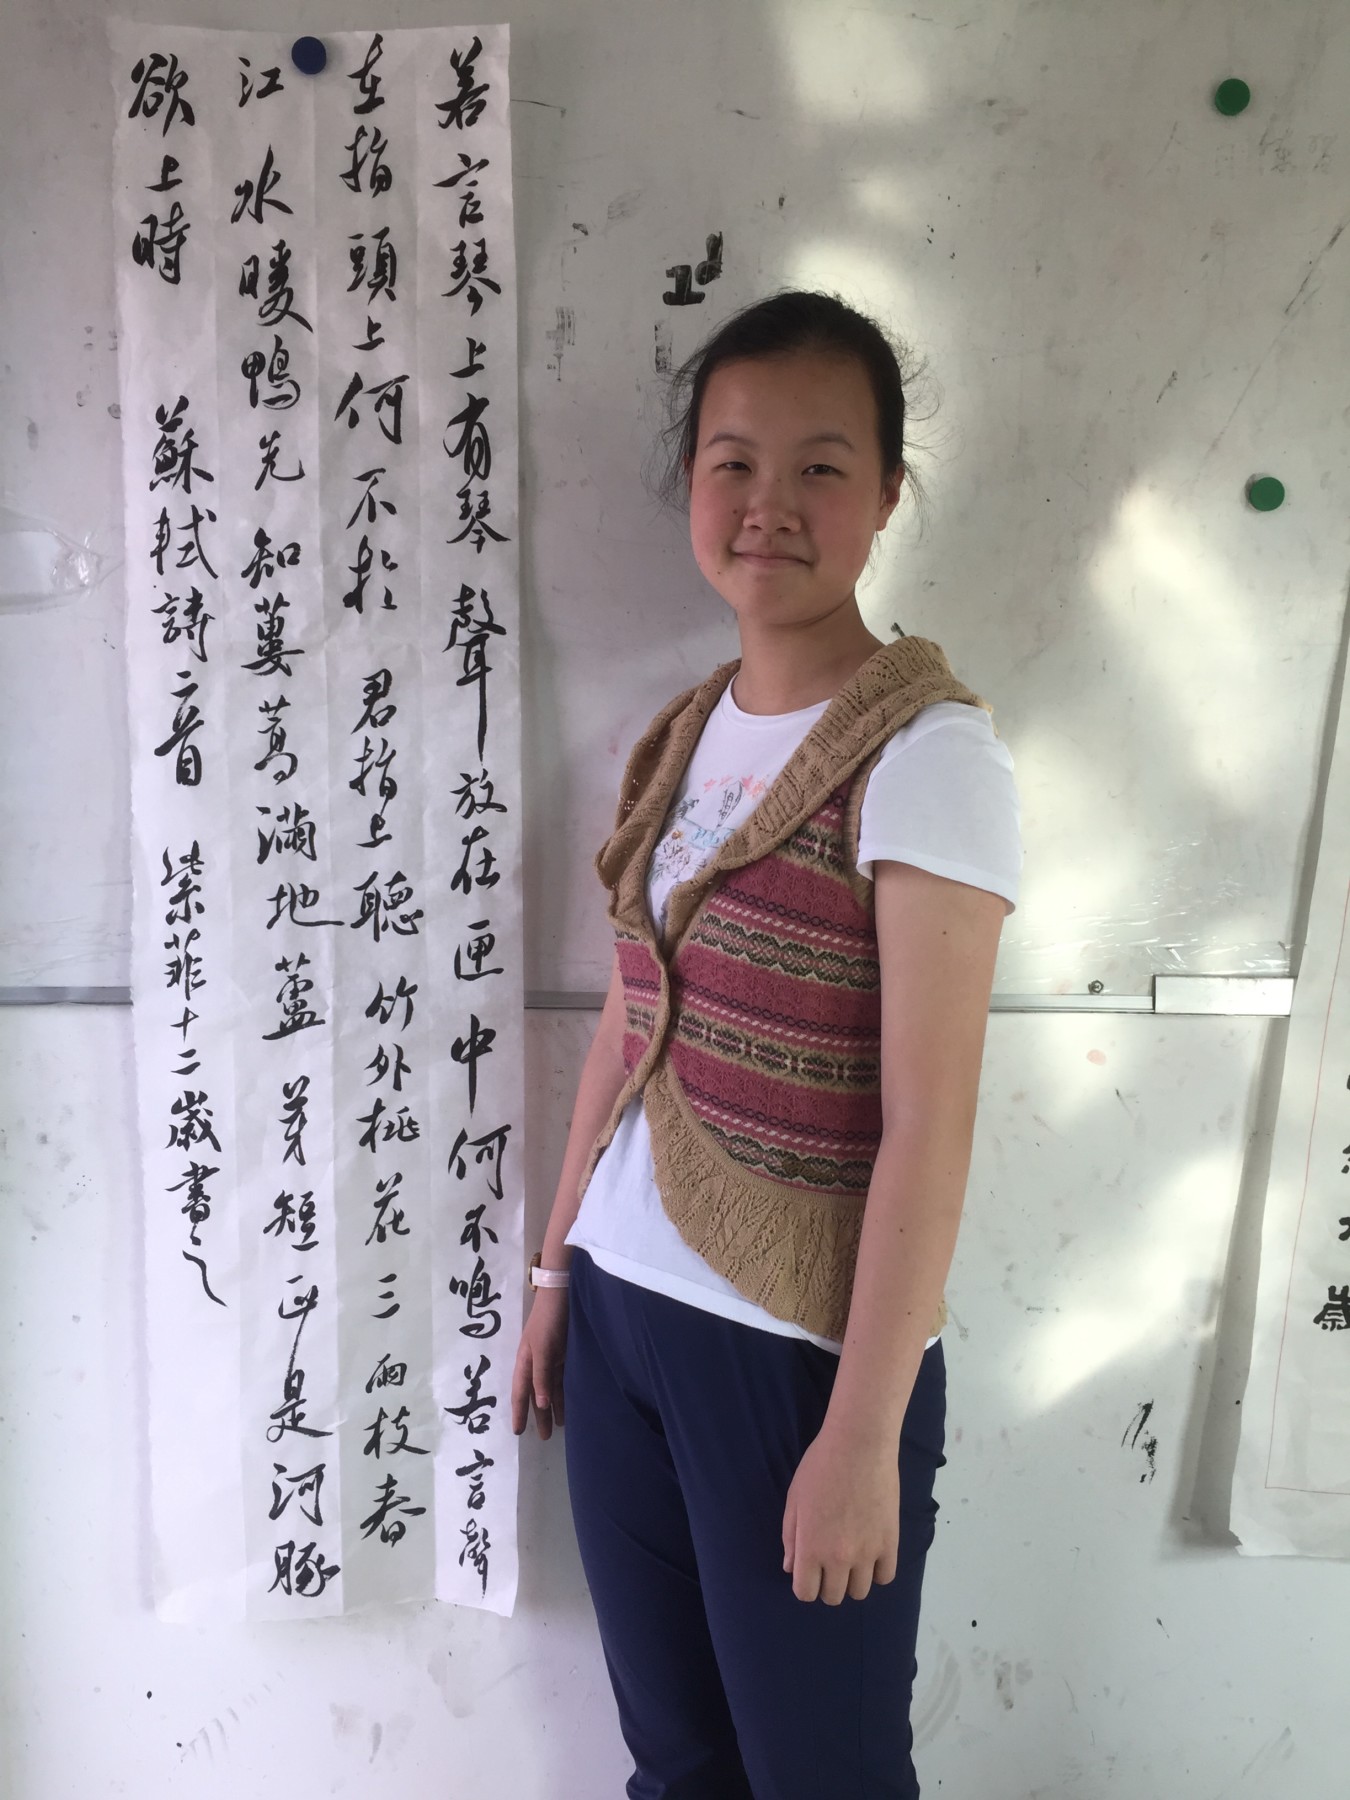 若言琴上有琴聲放在匣中何不鳴若言聲
在指頭上何不於君指上聽竹外桃花三兩枝春
江水暖鴨先知蔞蒿滿地蘆芽短正是河豚
欲上時 蘇軾詩二首 紫菲十二歲書之
歲